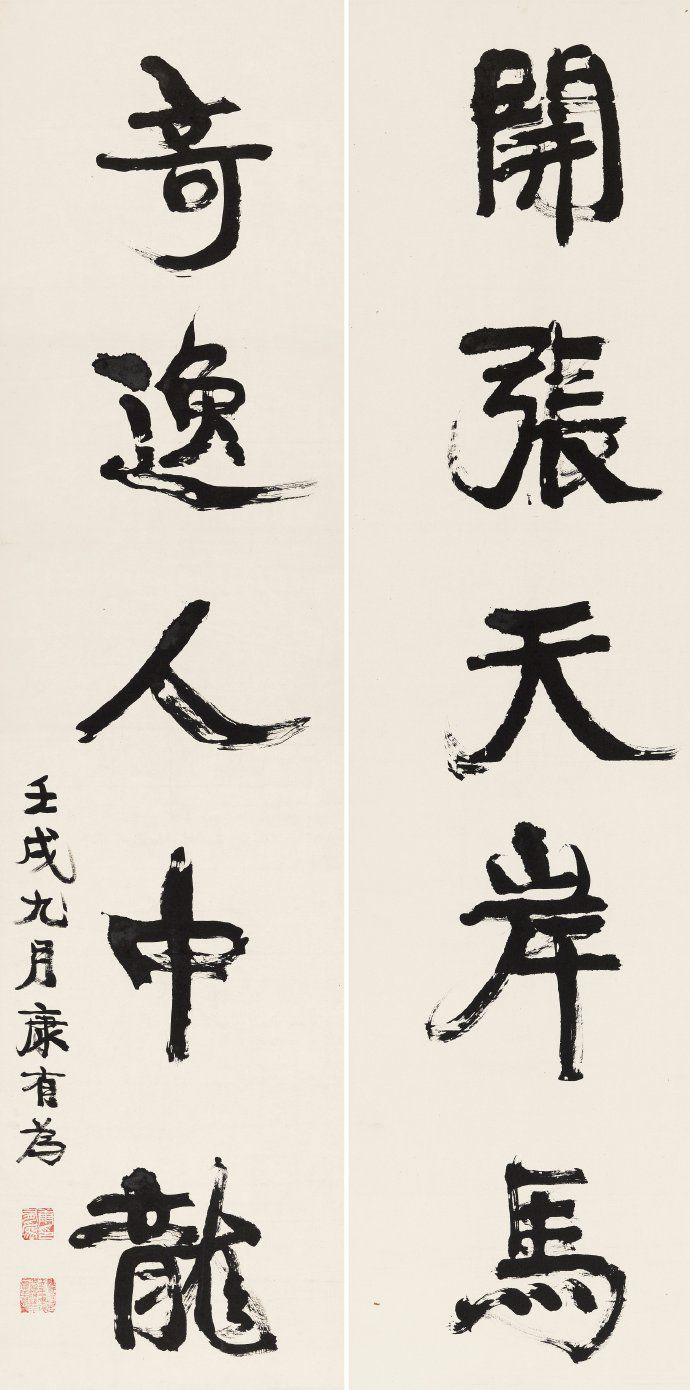 開張天岸馬
奇逸人中龍
壬戌九月康有為